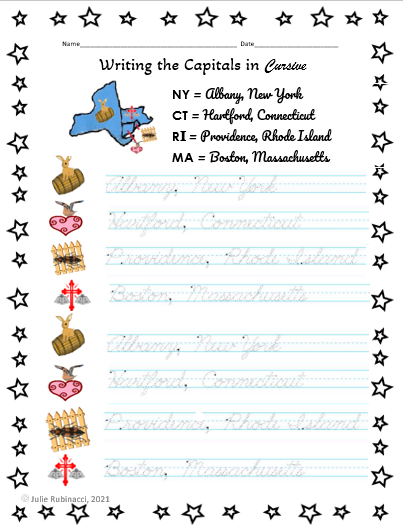 Name________________ Date________________
Writing the Capitals in Cursive
NY = Albany, New York
CT = Hartford, Connecticut
RI = Providence, Rhode Island
MA = Boston, Massachusetts
Albany, New York
Hartford, Connecticut
Providence, Rhode Island
Boston, Massachusetts
Albany, New York
Hartford, Connecticut
Providence, Rhode Island
Boston, Massachusetts
© Julie Rubinacci, 2021